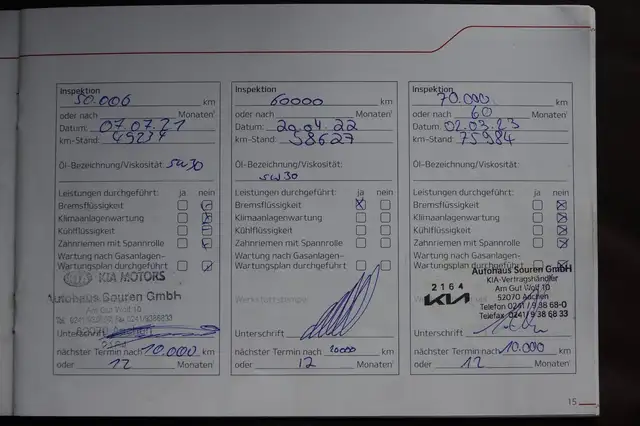 Inspektion
50.000 km
oder nach Monaten¹
Datum: 07.07.21
km-Stand: 49234
Öl-Bezeichnung/Viskosität: 5W30
Leistungen durchgeführt: ja nein
Bremsflüssigkeit
Klimaanlagenwartung
Kühlflüssigkeit
Zahnriemen mit Spannrolle
Wartung nach Gasanlagen-
Wartungsplan durchgeführt
KIA MOTORS
Autohaus Souren GmbH
Am Gut Wolf 10
52070 Aachen
Unterschrift
nächster Termin nach 10.000 km
oder 12 Monaten¹
Inspektion
60000 km
oder nach Monaten¹
Datum: 29.04.22
km-Stand: 58627
Öl-Bezeichnung/Viskosität:
5W30
Leistungen durchgeführt: ja nein
Bremsflüssigkeit
Klimaanlagenwartung
Kühlflüssigkeit
Zahnriemen mit Spannrolle
Wartung nach Gasanlagen-
Wartungsplan durchgeführt
Unterschrift
nächster Termin nach 10000 km
oder 12 Monaten¹
Inspektion
70.000 km
oder nach 60 Monaten¹
Datum: 02.03.23
km-Stand: 75984
Öl-Bezeichnung/Viskosität:
Leistungen durchgeführt: ja nein
Bremsflüssigkeit
Klimaanlagenwartung
Kühlflüssigkeit
Zahnriemen mit Spannrolle
Wartung nach Gasanlagen-
Wartungsplan durchgeführt
Autohaus Souren GmbH
KIA-Vertragshändler
2164
KIA
Am Gut Wolf 10
52070 Aachen
Telefon 0241 / 9 38 68-0
Telefax 0241 / 9 38 68 33
Unterschrift
nächster Termin nach 10.000 km
oder 12 Monaten¹
15